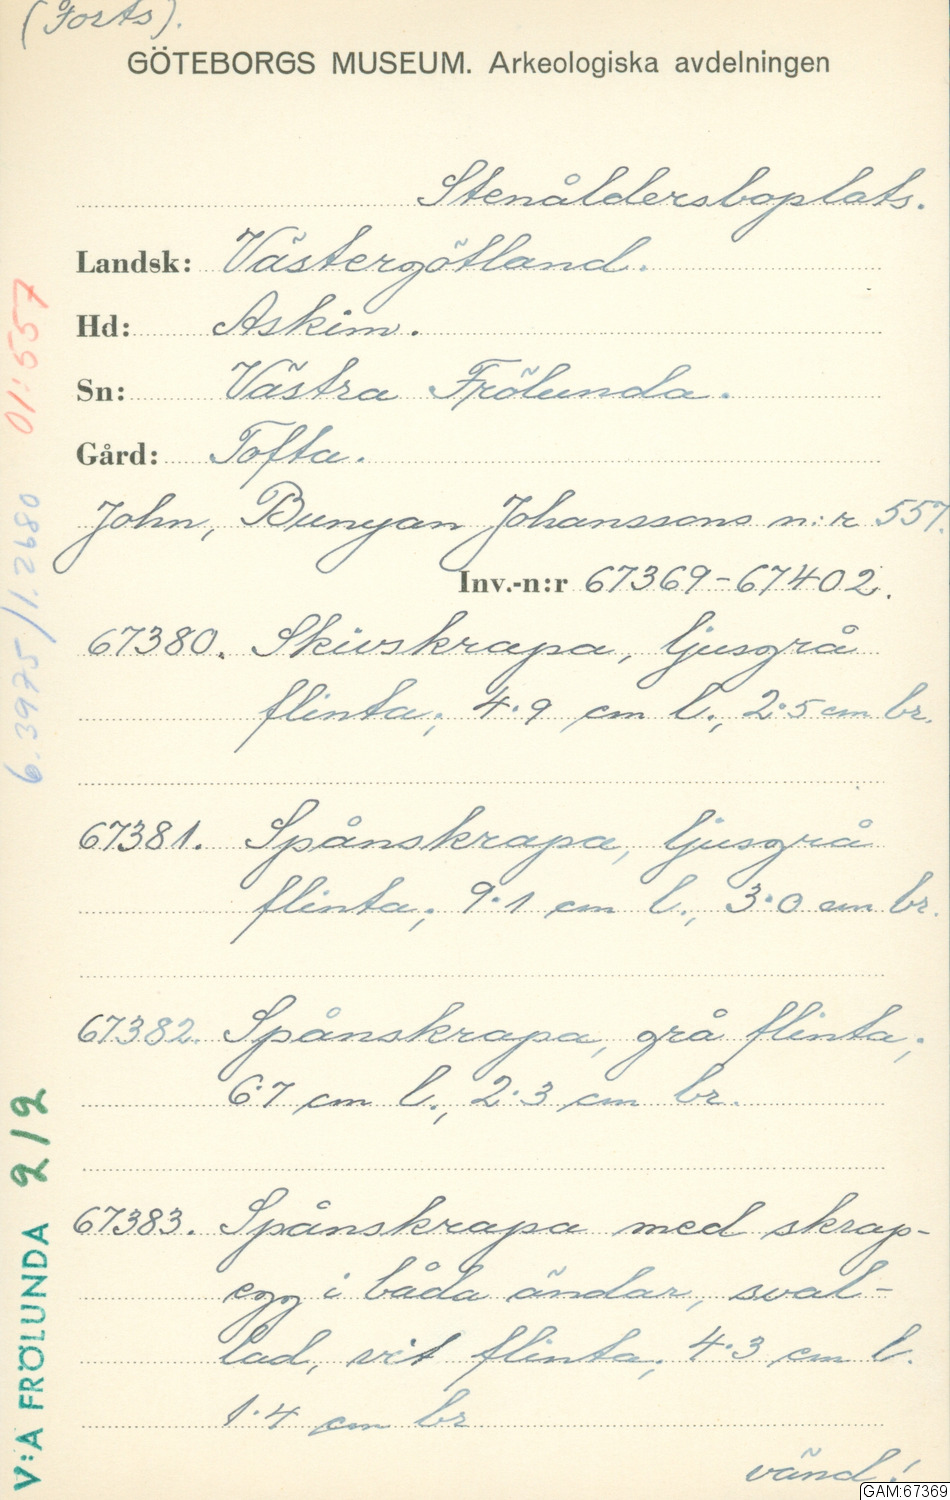 (Forts).
GÖTEBORGS MUSEUM. Arkeologiska avdelningen
Stenåldersboplats.
Landsk: Västergötland.
Hd: Askim.
Sn: Västra Frölunda.
Gård: Tofta.
John, Bunyan Johanssons n:r 557.
Inv.-n:r 67369-67402.
67380. Skivskrapa, ljusgrå
flinta; 4.9 cm l., 2.5 cm br.
67381. Spånskrapa, ljusgrå
flinta; 9.1 cm l., 3.0 cm br.
67382. Spånskrapa, grå flinta;
6.7 cm l., 2.3 cm br.
67383. Spånskrapa med skrap-
egg i båda ändar, sval-
lad, vit flinta; 4.3 cm l.
1.4 cm br
vänd!
01:557
6.3975/1.2680
V:A FRÖLUNDA 212
GAM:67369